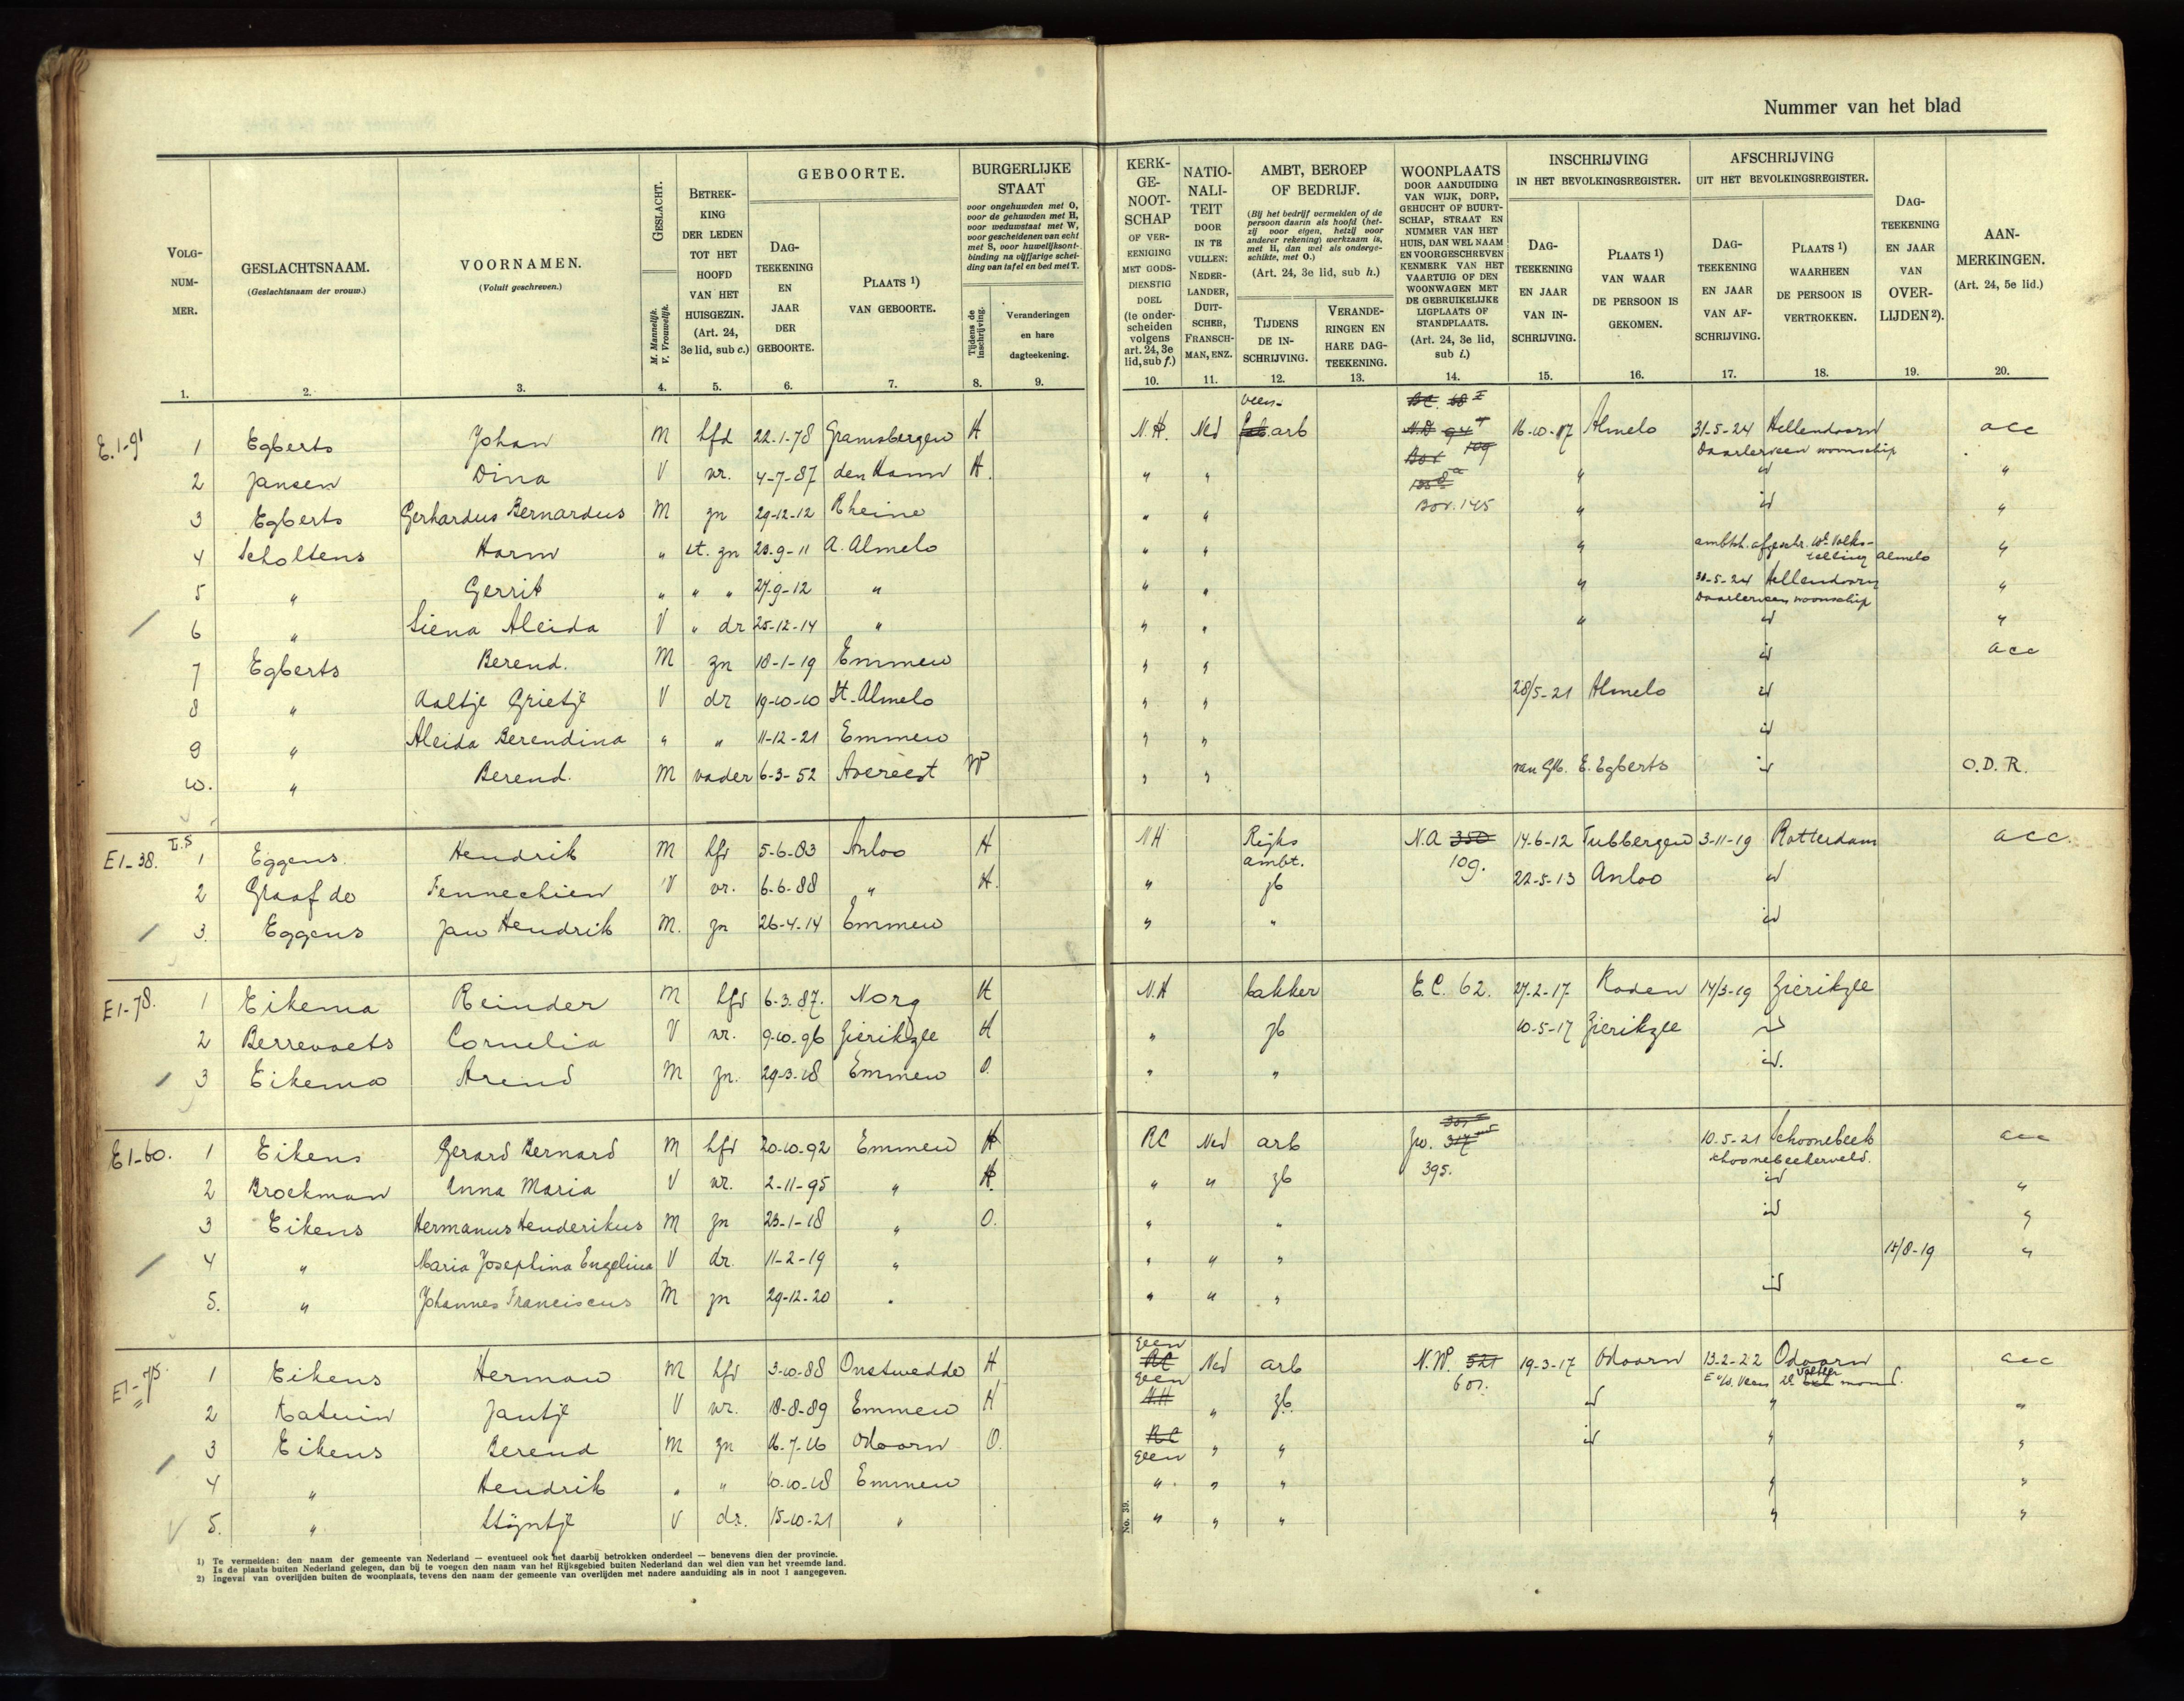 Nummer van het blad
VOLG-NUM-MER. 1.
GESLACHTSNAAM. (Geslachtsnaam der vrouw.) 2.
VOORNAMEN. (Voluit geschreven.) 3.
GESLACHT. M. Mannelijk. V. Vrouwelijk. 4.
BETREK-KING DER LEDEN TOT HET HOOFD VAN HET HUISGEZIN. (Art. 24, 3e lid, sub c.) 5.
GEBOORTE.
DAG-TEEKENING EN JAAR DER GEBOORTE. 6.
PLAATS 1) VAN GEBOORTE. 7.
BURGERLIJKE STAAT
voor ongehuwden met O, voor de gehuwden met H, voor weduwstaat met W, voor gescheidenen van echt met S, voor huwelijksont-binding na vijfjarige schei-ding van tafel en bed met T.
Tijdens de inschrijving. 8.
Veranderingen en hare dagteekening. 9.
KERK-GE-NOOT-SCHAP OF VER-EENIGING MET GODS-DIENSTIG DOEL (te onder-scheiden volgens art. 24, 3e lid, sub f.) 10.
NATIO-NALI-TEIT DOOR IN TE VULLEN: NEDER-LANDER, DUIT-SCHER, FRANSCH-MAN, ENZ. 11.
AMBT, BEROEP OF BEDRIJF.
(Bij het bedrijf vermelden of de persoon daarin als hoofd (het-zij voor eigen, hetzij voor anderer rekening) werkzaam is, met H, dan wel als onderge-schikte, met O.)
(Art. 24, 3e lid, sub h.)
TIJDENS DE IN-SCHRIJVING. 12.
VERANDE-RINGEN EN HARE DAG-TEEKENING. 13.
WOONPLAATS DOOR AANDUIDING VAN WIJK, DORP, GEHUCHT OF BUURT-SCHAP, STRAAT EN NUMMER VAN HET HUIS, DAN WEL NAAM EN VOORGESCHREVEN KENMERK VAN HET VAARTUIG OF DEN WOONWAGEN MET DE GEBRUIKELIJKE LIGPLAATS OF STANDPLAATS. (Art. 24, 3e lid, sub i.) 14.
INSCHRIJVING IN HET BEVOLKINGSREGISTER.
DAG-TEEKENING EN JAAR VAN IN-SCHRIJVING. 15.
PLAATS 1) VAN WAAR DE PERSOON IS GEKOMEN. 16.
AFSCHRIJVING UIT HET BEVOLKINGSREGISTER.
DAG-TEEKENING EN JAAR VAN AF-SCHRIJVING. 17.
PLAATS 1) WAARHEEN DE PERSOON IS VERTROKKEN. 18.
DAG-TEEKENING EN JAAR VAN OVER-LIJDEN 2). 19.
AAN-MERKINGEN. (Art. 24, 5e lid.) 20.
veen-
E.1-91 1 Egberts Johan M hfd 22-1-78 Gramsbergen H N.H. Ned arb 109 16-10-17 Almelo 31-5-24 Hellendoorn acc
Daarlerveen woonschip
2 Jansen Dina V vr. 4-7-87 den Ham H. " " " id "
3 Egberts Gerhardus Bernardus M zn 29-12-12 Rheine " " Bov. 145 " id "
4 Scholtens Harm " st. zn 23-9-11 A. Almelo " " " ambtsh. afgeschr. 10e Volks-telling Almelo "
5 " Gerrit " " " 27-9-12 " " " " 31-5-24 Hellendoorn "
Daarlerveen woonschip
6 " Siena Aleida V " dr 25-12-14 " " " " id "
7 Egberts Berend. M zn 18-1-19 Emmen " " id acc
8 " Aaltje Grietje V dr 19-10-10 St. Almelo " " 28/5-21 Almelo id
9 " Aleida Berendina " " 11-12-21 Emmen " " id
10. " Berend. M vader 6-3-52 Avereest W " " van Gb. E. Egberts id O.D.R.
E1-38. 1 Eggens Hendrik M hfd 5-6-83 Anloo H NH Rijks ambt. N.A 350 109. 14-6-12 Tubbergen 3-11-19 Rotterdam acc.
2 Graaf de Fennechien V vr. 6-6-88 " H. " zb 22-5-13 Anloo id
3. Eggens Jan Hendrik M. zn 26-4-14 Emmen " " id
E1-78. 1 Eikema Reinder M hfd 6-3-87. Norg H N.H bakker E.C. 62. 27-2-17 Roden 14/3-19 Zierikzee
2 Berrevoets Cornelia V vr. 9-10-96 Zierikzee H " zb 10-5-17 Zierikzee id
3 Eikema Arend M zn. 29-3-18 Emmen O. " " id.
E1-60. 1 Eikens Gerard Bernard M hfd 20-10-92 Emmen H RC Ned arb 395. 10-5-21 Schoonebeek acc
Schoonebeekerveld.
2 Broekman Anna Maria V vr. 2-11-95 " H. " " zb id "
3 Eikens Hermanus Henderikus M zn 23-1-18 " O. " " id "
4 " Maria Josephina Engelina V dr. 11-2-19 " " " " 15/8-19 "
5. " Johannes Franciscus M zn 29-12-20 " " " " id
E1-75. 1 Eikens Herman M hfd 3-10-88 Onstwedde H geen RC Ned arb N.W. 521 601. 19-3-17 Odoorn 13-2-22 Odoorn acc
2 Katuin Jantje V vr. 18-8-89 Emmen H geen NH " zb. id " "
3 Eikens Berend M zn 16-7-16 Odoorn O. RC geen " " id " "
4 " Hendrik " " 10-10-18 Emmen " " " " "
5. " Stijntje V dr. 15-10-21 " " " " " "
No. 39.
1) Te vermelden: den naam der gemeente van Nederland — eventueel ook het daarbij betrokken onderdeel — benevens dien der provincie.
Is de plaats buiten Nederland gelegen, dan bij te voegen den naam van het Rijksgebied buiten Nederland dan wel dien van het vreemde land.
2) Ingeval van overlijden buiten de woonplaats, tevens den naam der gemeente van overlijden met nadere aanduiding als in noot 1 aangegeven.